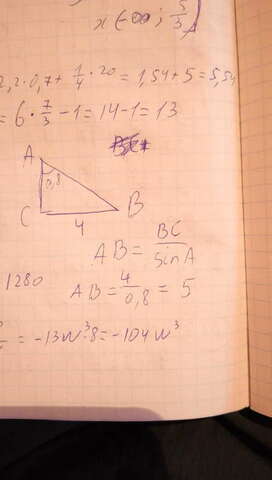 x (-∞; 5/3)
2,2·0,7+ 1/4 ·20 = 1,54+5=6,54
= 6· 7/3 -1=14-1=13
A
0,8
C
B
4
AB= BC/SinA
1280
AB= 4/0,8 = 5
= -13w³·8=-104w³